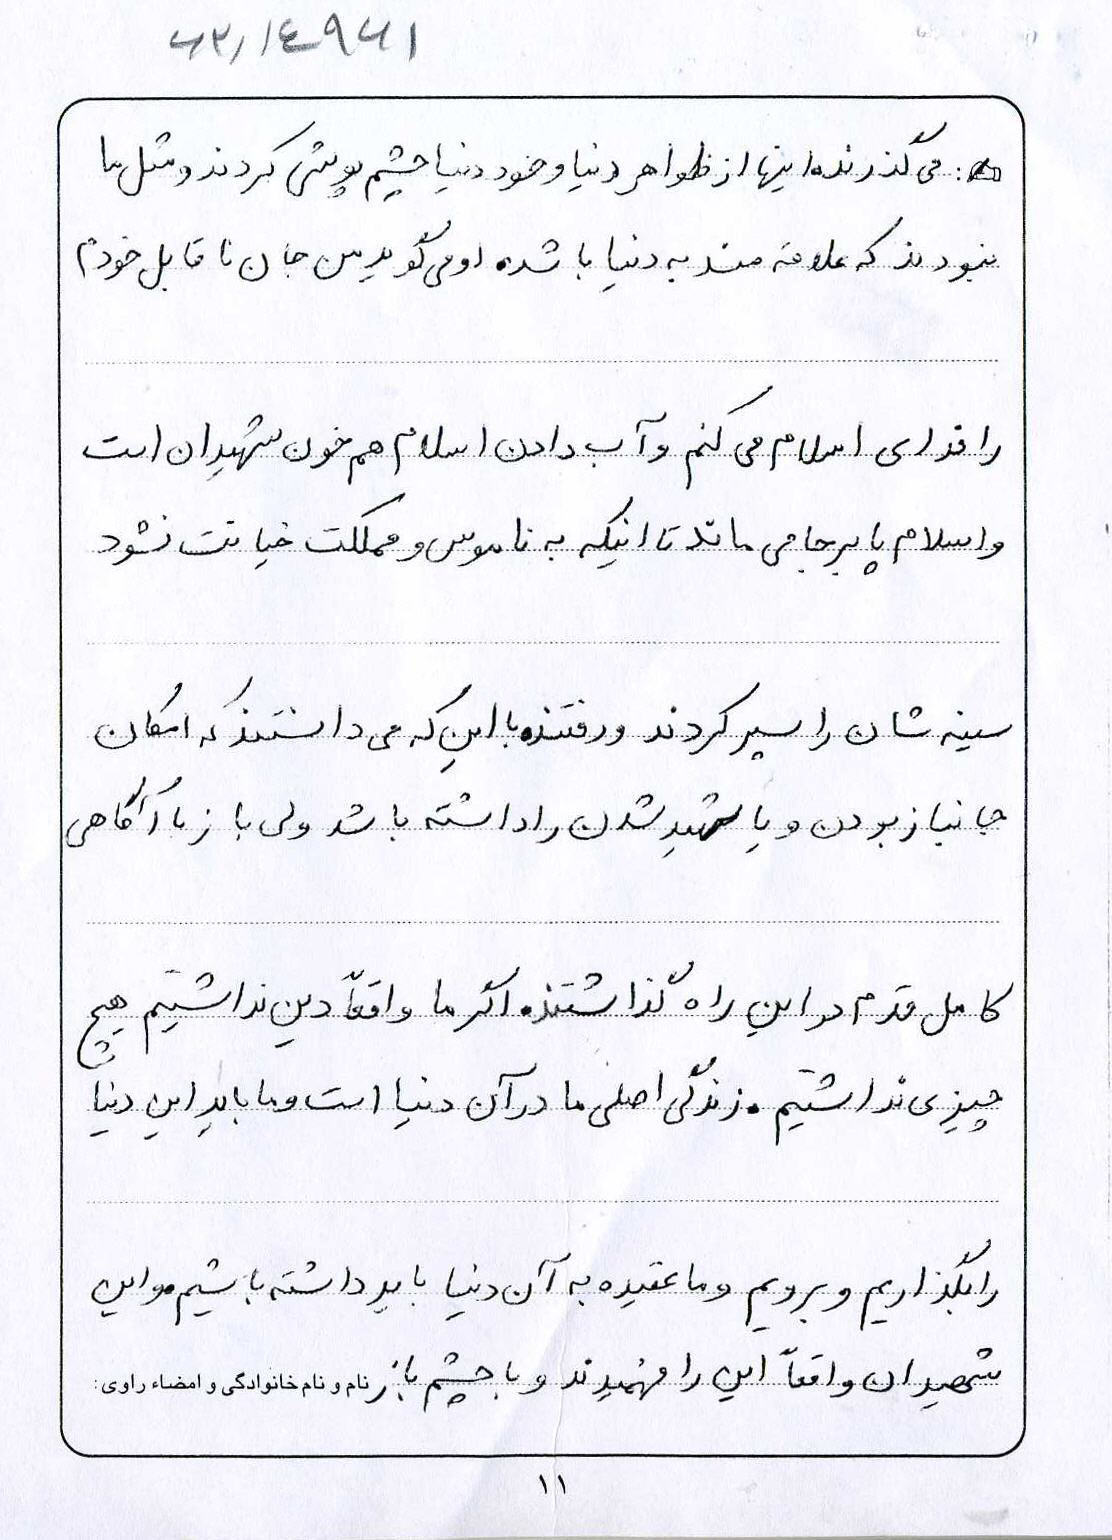 ۶۲۱۱۴۹۶۱
ج: می گذرند. اینها از ظواهر دنیا و خود دنیا چشم پوشی کردند و مثل ما
نبودند که علاقه مند به دنیا باشد. او می گوید من جان نا قابل خودم
را فدای اسلام می کنم و آب دادن اسلام هم خون شهیدان است
و اسلام پا برجا می ماند تا اینکه به ناموس و مملکت خیانت نشود
سینه شان را سپر کردند و رفتند. با این که می دانستند که امکان
جانباز بودن و یا شهید شدن را داشته باشد ولی باز با آگاهی
کامل قدم در این راه گذاشتند. اگر ما واقعاً دین نداشتیم هیچ
چیزی نداشتیم. زندگی اصلی ما در آن دنیا است و ما باید این دنیا
را بگذاریم و برویم و ما عقیده به آن دنیا باید داشته باشیم. و این
شهیدان واقعاً این را فهمیدند و با چشم باز نام و نام خانوادگی و امضاء راوی:
۱۱